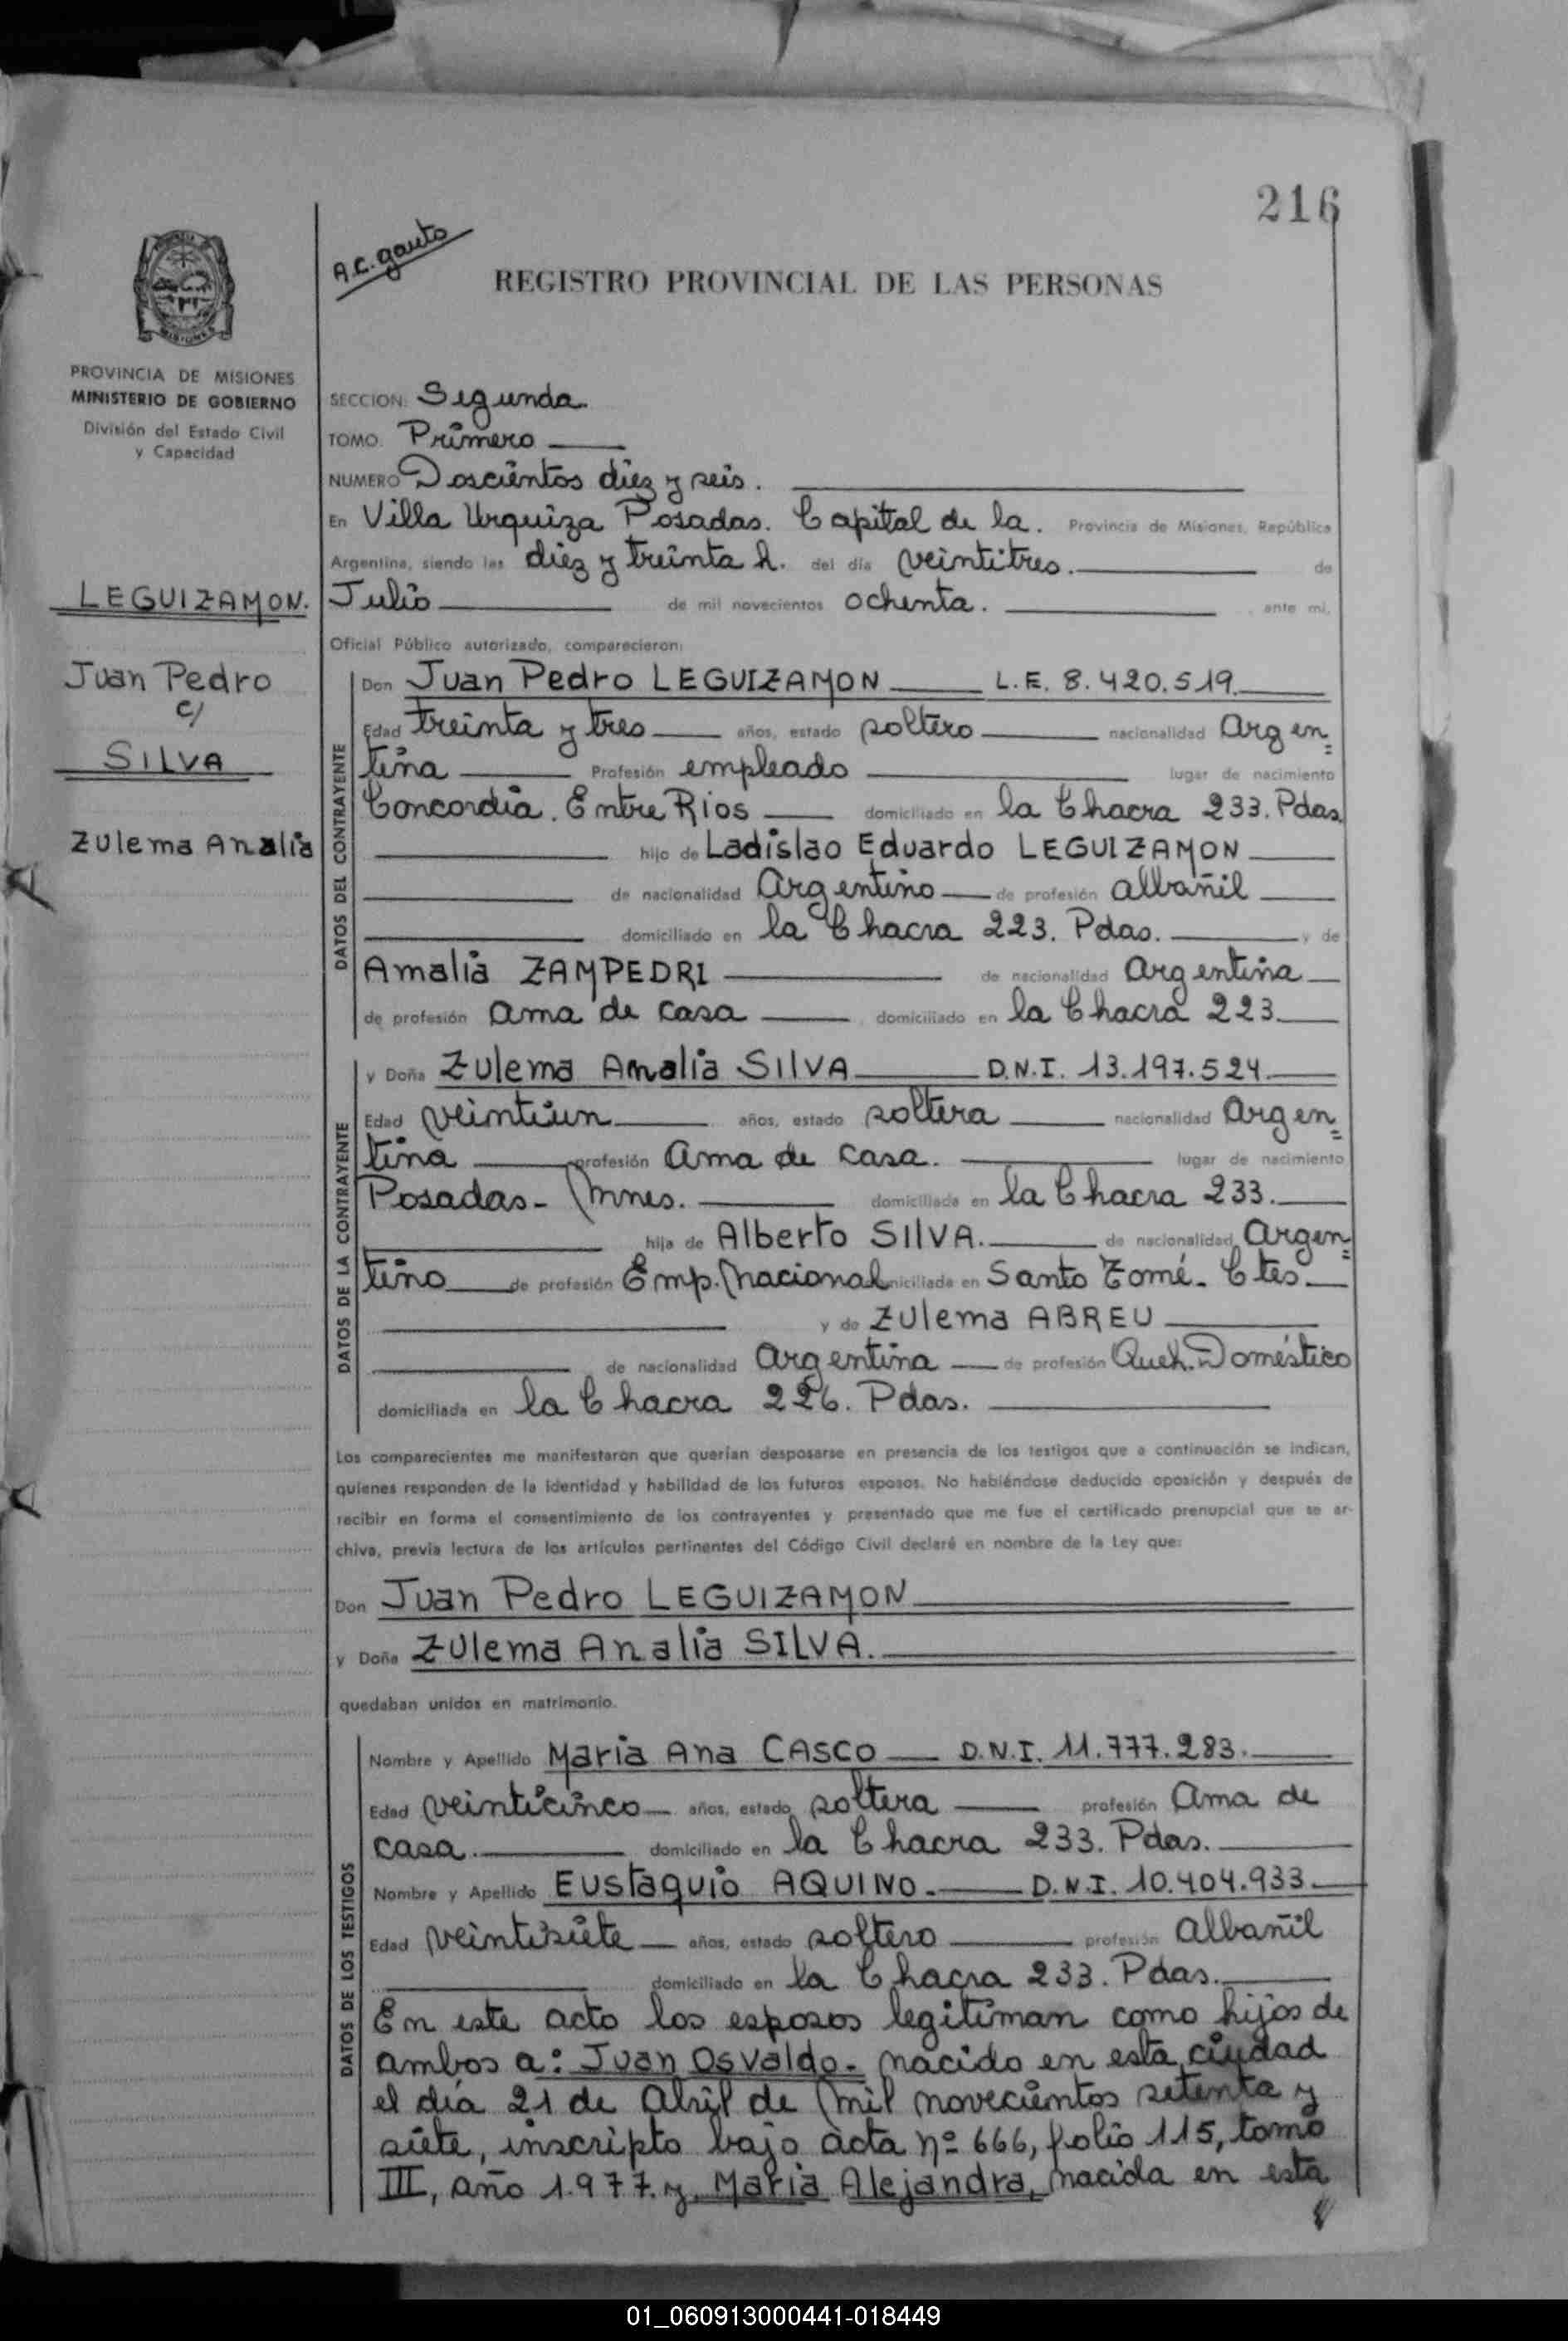 216
A.C. Gauto
REGISTRO PROVINCIAL DE LAS PERSONAS
MISIONES
PROVINCIA DE MISIONES
MINISTERIO DE GOBIERNO
División del Estado Civil
y Capacidad
LEGUIZAMON.
Juan Pedro
c/
SILVA
Zulema Analia
SECCION: Segunda
TOMO: Primero
NUMERO Doscientos diez y seis.
En Villa Urquiza Posadas. Capital de la. Provincia de Misiones, República
Argentina, siendo las diez y treinta h. del día veintitres. de
Julio de mil novecientos ochenta. ante mí,
Oficial Público autorizado, comparecieron:
DATOS DEL CONTRAYENTE
Don Juan Pedro LEGUIZAMON L.E. 8.420.519.
Edad treinta y tres años, estado soltero nacionalidad Argen=
tina Profesión empleado lugar de nacimiento
Concordia. Entre Rios domiciliado en la Chacra 233. Pdas.
hijo de Ladislao Eduardo LEGUIZAMON
de nacionalidad Argentino de profesión albañil
domiciliado en la Chacra 223. Pdas. y de
Amalia ZAMPEDRI de nacionalidad Argentina
de profesión ama de casa domiciliado en la Chacra 223.
DATOS DE LA CONTRAYENTE
y Doña Zulema Analia SILVA D.N.I. 13.197.524
Edad veintiun años, estado soltera nacionalidad Argen=
tina profesión Ama de casa. lugar de nacimiento
Posadas- Mnes. domiciliada en la Chacra 233.
hija de Alberto SILVA. de nacionalidad Argen=
tino de profesión Emp. Nacional domiciliada en Santo Tomé. Ctes.
y de Zulema ABREU
de nacionalidad Argentina de profesión Queh. Doméstico
domiciliada en la Chacra 226. Pdas.
Los comparecientes me manifestaron que querían desposarse en presencia de los testigos que a continuación se indican,
quienes responden de la identidad y habilidad de los futuros esposos. No habiéndose deducido oposición y después de
recibir en forma el consentimiento de los contrayentes y presentado que me fue el certificado prenupcial que se ar-
chiva, previa lectura de los artículos pertinentes del Código Civil declaré en nombre de la Ley que:
Don Juan Pedro LEGUIZAMON
y Doña Zulema Analia SILVA.
quedaban unidos en matrimonio.
DATOS DE LOS TESTIGOS
Nombre y Apellido Maria Ana CASCO D.N.I. 11.777.283.
Edad veinticinco años, estado soltera profesión Ama de
casa. domiciliado en la Chacra 233. Pdas.
Nombre y Apellido Eustaquio AQUINO. D.N.I. 10.404.933
Edad veintisiete años, estado soltero profesión albañil
domiciliado en la Chacra 233. Pdas.
En este acto los esposos legitiman como hijos de
ambos a: Juan Osvaldo. nacido en esta ciudad
el día 21 de Abril de mil novecientos setenta y
siete, inscripto bajo acta nº 666, folio 115, tomo
III, año 1.977. y Maria Alejandra, nacida en esta
01_060913000441-018449